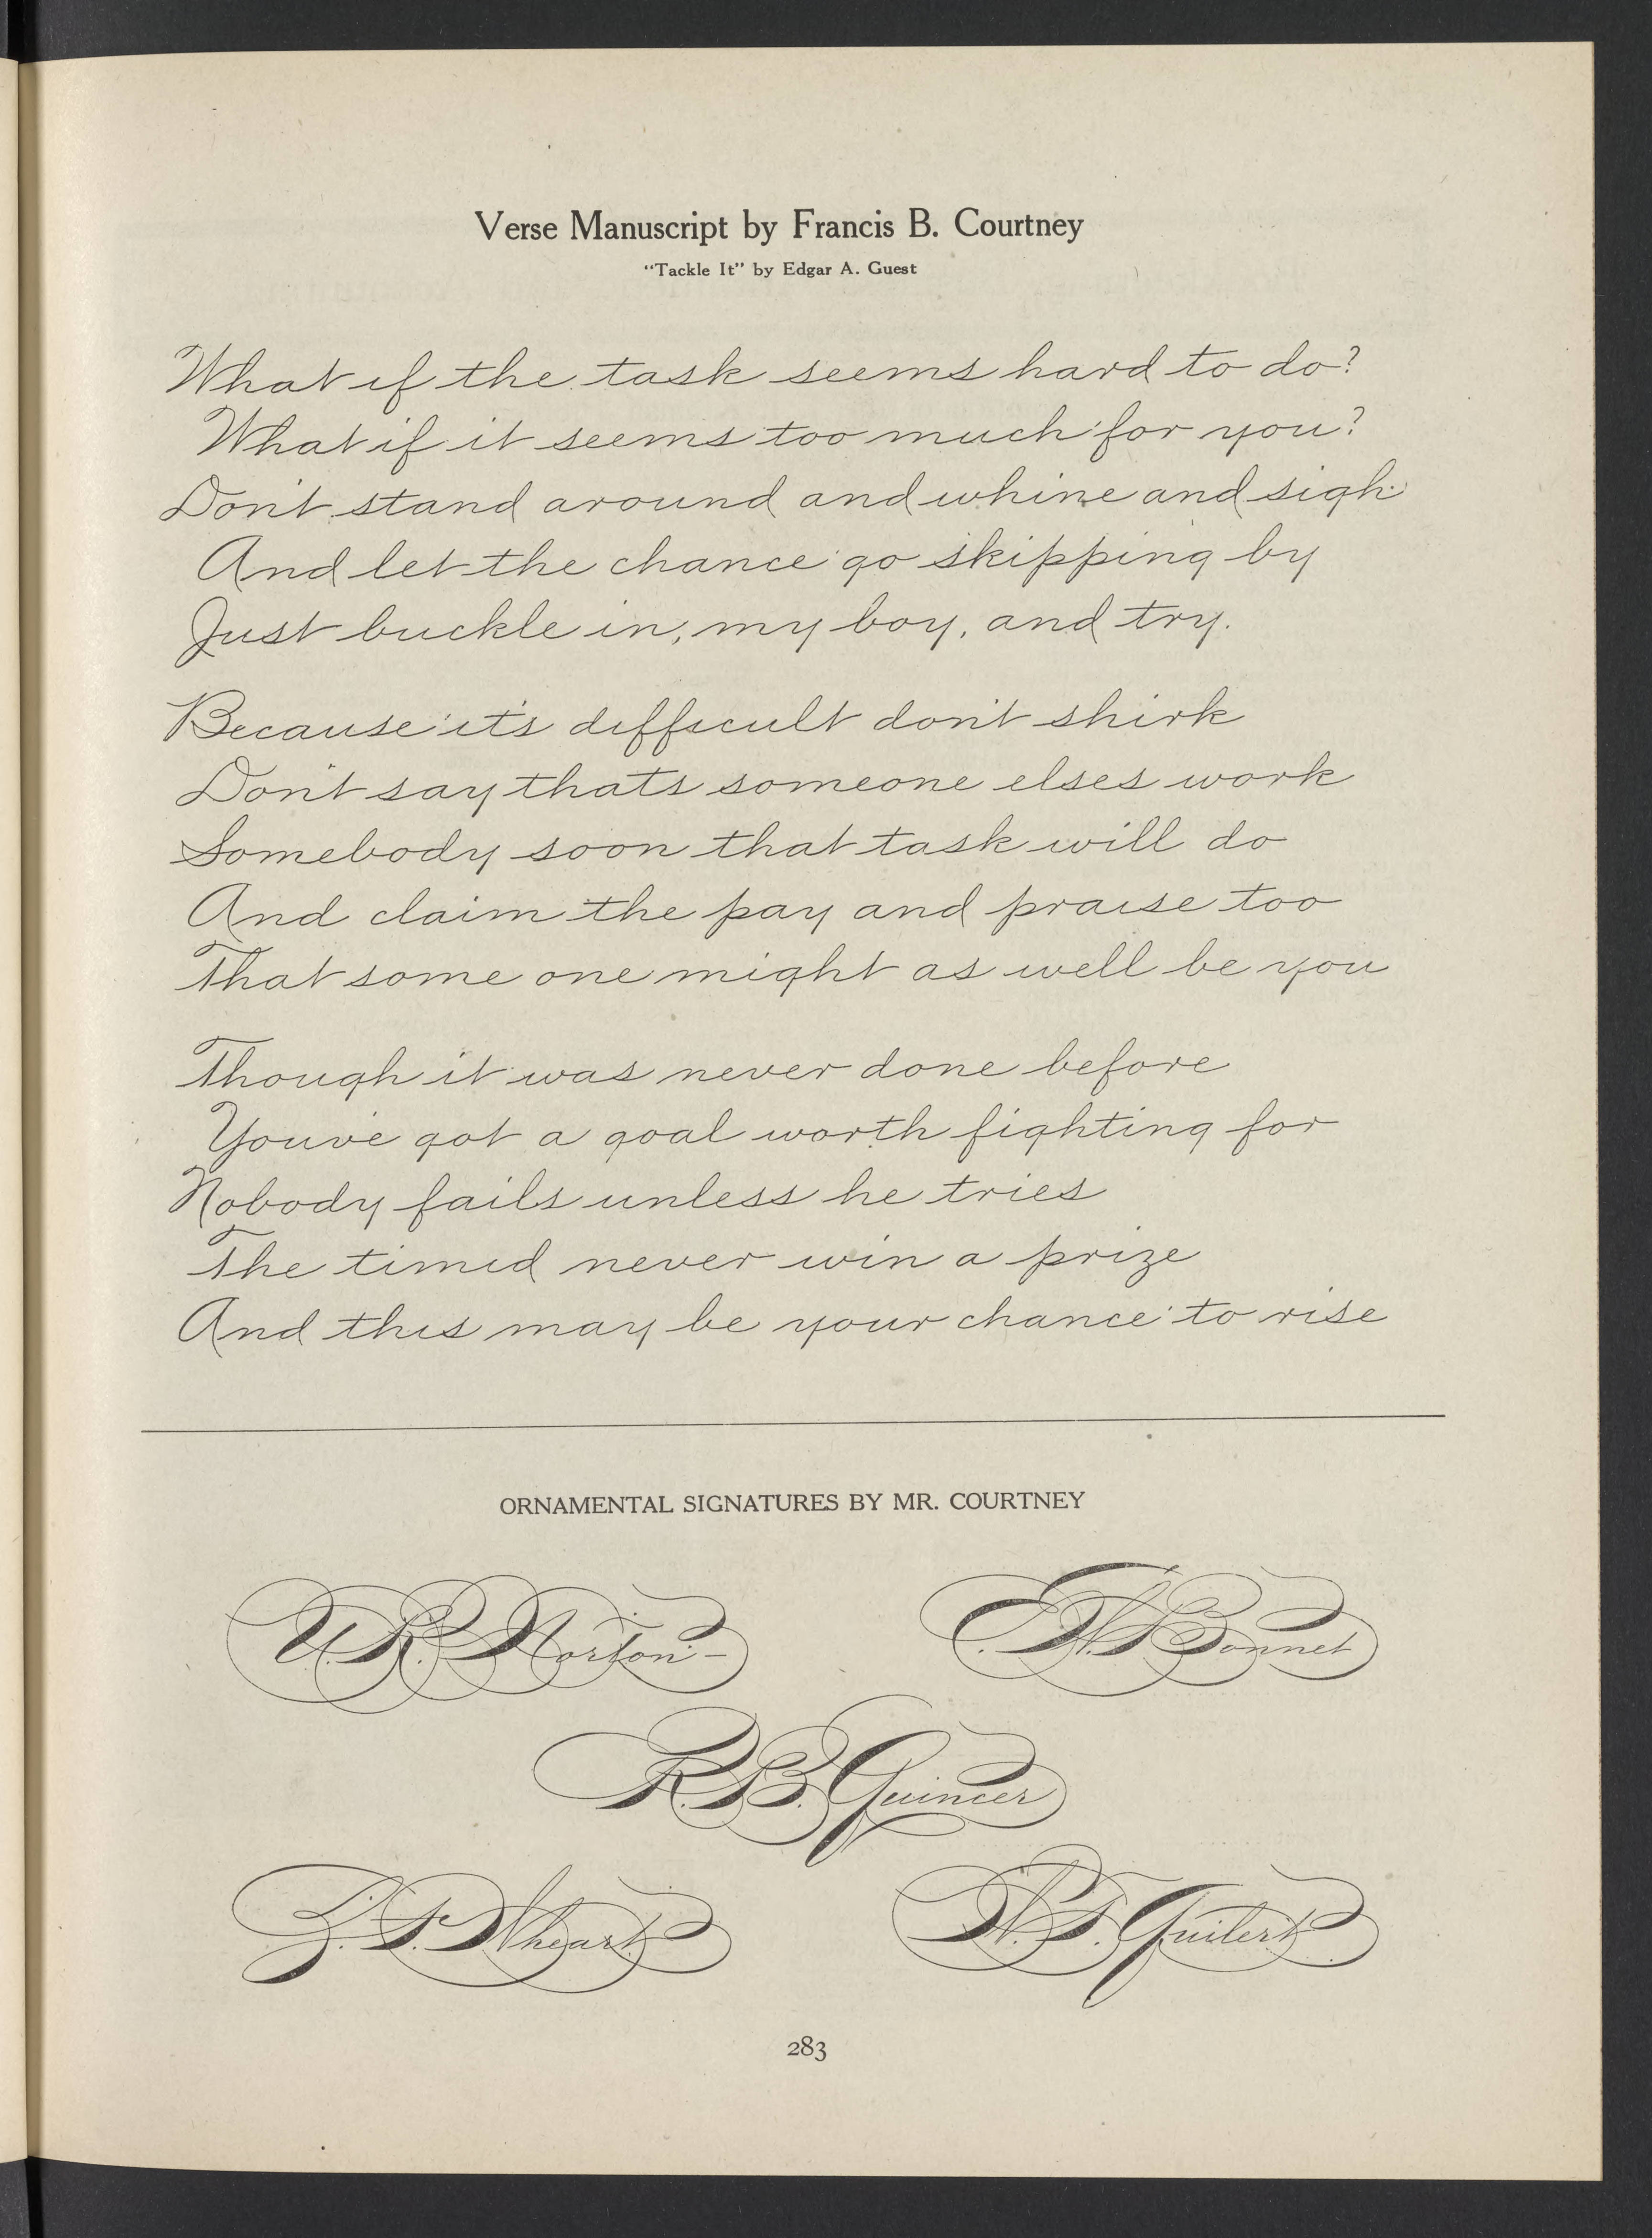 Verse Manuscript by Francis B. Courtney
"Tackle It" by Edgar A. Guest
What if the task seems hard to do?
What if it seems too much for you?
Don't stand around and whine and sigh
And let the chance go skipping by
Just buckle in, my boy, and try.
Because it's difficult don't shirk
Don't say thats someone elses work
Somebody soon that task will do
And claim the pay and praise too
That some one might as well be you
Though it was never done before
You've got a goal worth fighting for
Nobody fails unless he tries
The timid never win a prize
And this may be your chance to rise
ORNAMENTAL SIGNATURES BY MR. COURTNEY
U. R. Norton
Bonnet
R. B. Quincer
Z. T. Wheart
W. T. Quilert
283